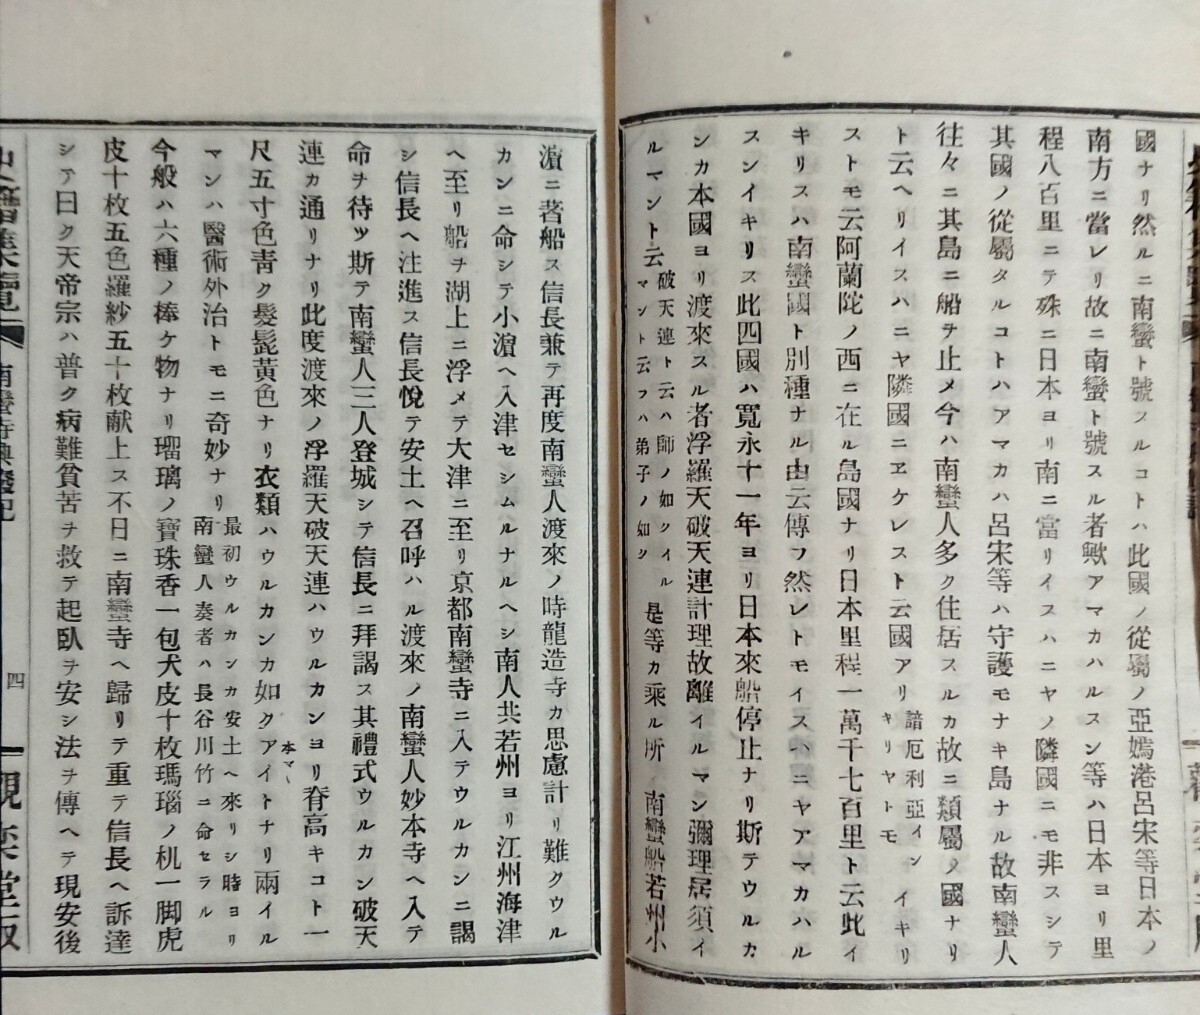 國ナリ然ルニ南蠻ト號スルコトハ此國ノ從屬ノ亞媽港呂宋等日本ノ
南方ニ當レリ故ニ南蠻ト號スル者歟アマカハルスン等ハ日本ヨリ里
程八百里ニテ殊ニ日本ヨリ南ニ當リイスハニヤノ隣國ニモ非スシテ
其國ノ從屬タルコトハアマカハ呂宋等ハ守護モナキ島ナル故南蠻人
往々ニ其島ニ船ヲ止メ今ハ南蠻人多ク住居スルカ故ニ類屬ノ國ナリ
ト云ヘリイスハニヤ隣國ニヱケレスト云國アリ諳厄利亞イン
キリヤトモイキリ
ストモ云阿蘭陀ノ西ニ在ル島國ナリ日本里程一萬千七百里ト云此イ
キリスハ南蠻國ト別種ナル由云傳フ然レトモイスハニヤアマカハル
スンイキリス此四國ハ寬永十一年ヨリ日本來船停止ナリ斯テウルカ
ンカ本國ヨリ渡來スル者浮羅天破天連計理故離イルマン彌理居須イ
ルマント云破天連ト云ハ師ノ如クイル
マント云フハ弟子ノ如シ是等カ乘ル所ノ南蠻船若州小
濵ニ著船ス信長兼テ再度南蠻人渡來ノ時龍造寺カ思慮計リ難クウル
カンニ命シテ小濵ヘ入津セシムルナルヘシ南人共若州ヨリ江州海津
ヘ至リ船ヲ湖上ニ浮メテ大津ニ至リ京都南蠻寺ニ入テウルカンニ謁
シ信長ヘ注進ス信長悅テ安土ヘ召呼ハル渡來ノ南蠻人妙本寺ヘ入テ
命ヲ待ツ斯テ南蠻人三人登城シテ信長ニ拜謁ス其禮式ウルカン破天
連カ通リナリ此度渡來ノ浮羅天破天連ハウルカンヨリ脊高キコト一
尺五寸色靑ク髮髭黃色ナリ衣類ハウルカンカ如クアイトナリ兩イル
本マヽ
マンハ醫術外治トモニ奇妙ナリ最初ウルカンカ安土ヘ來リシ時ヨリ
南蠻人奏者ハ長谷川竹ニ命セラル
今般ハ六種ノ棒ケ物ナリ瑠璃ノ寶珠香一包犬皮十枚瑪瑙ノ机一脚虎
皮十枚五色羅紗五十枚献上ス不日ニ南蠻寺ヘ歸リテ重テ信長ヘ訴達
シテ曰ク天帝宗ハ普ク病難貧苦ヲ救テ起臥ヲ安シ法ヲ傳ヘテ現安後
史籍集覽 南蠻寺興廢記 四 觀奕堂版